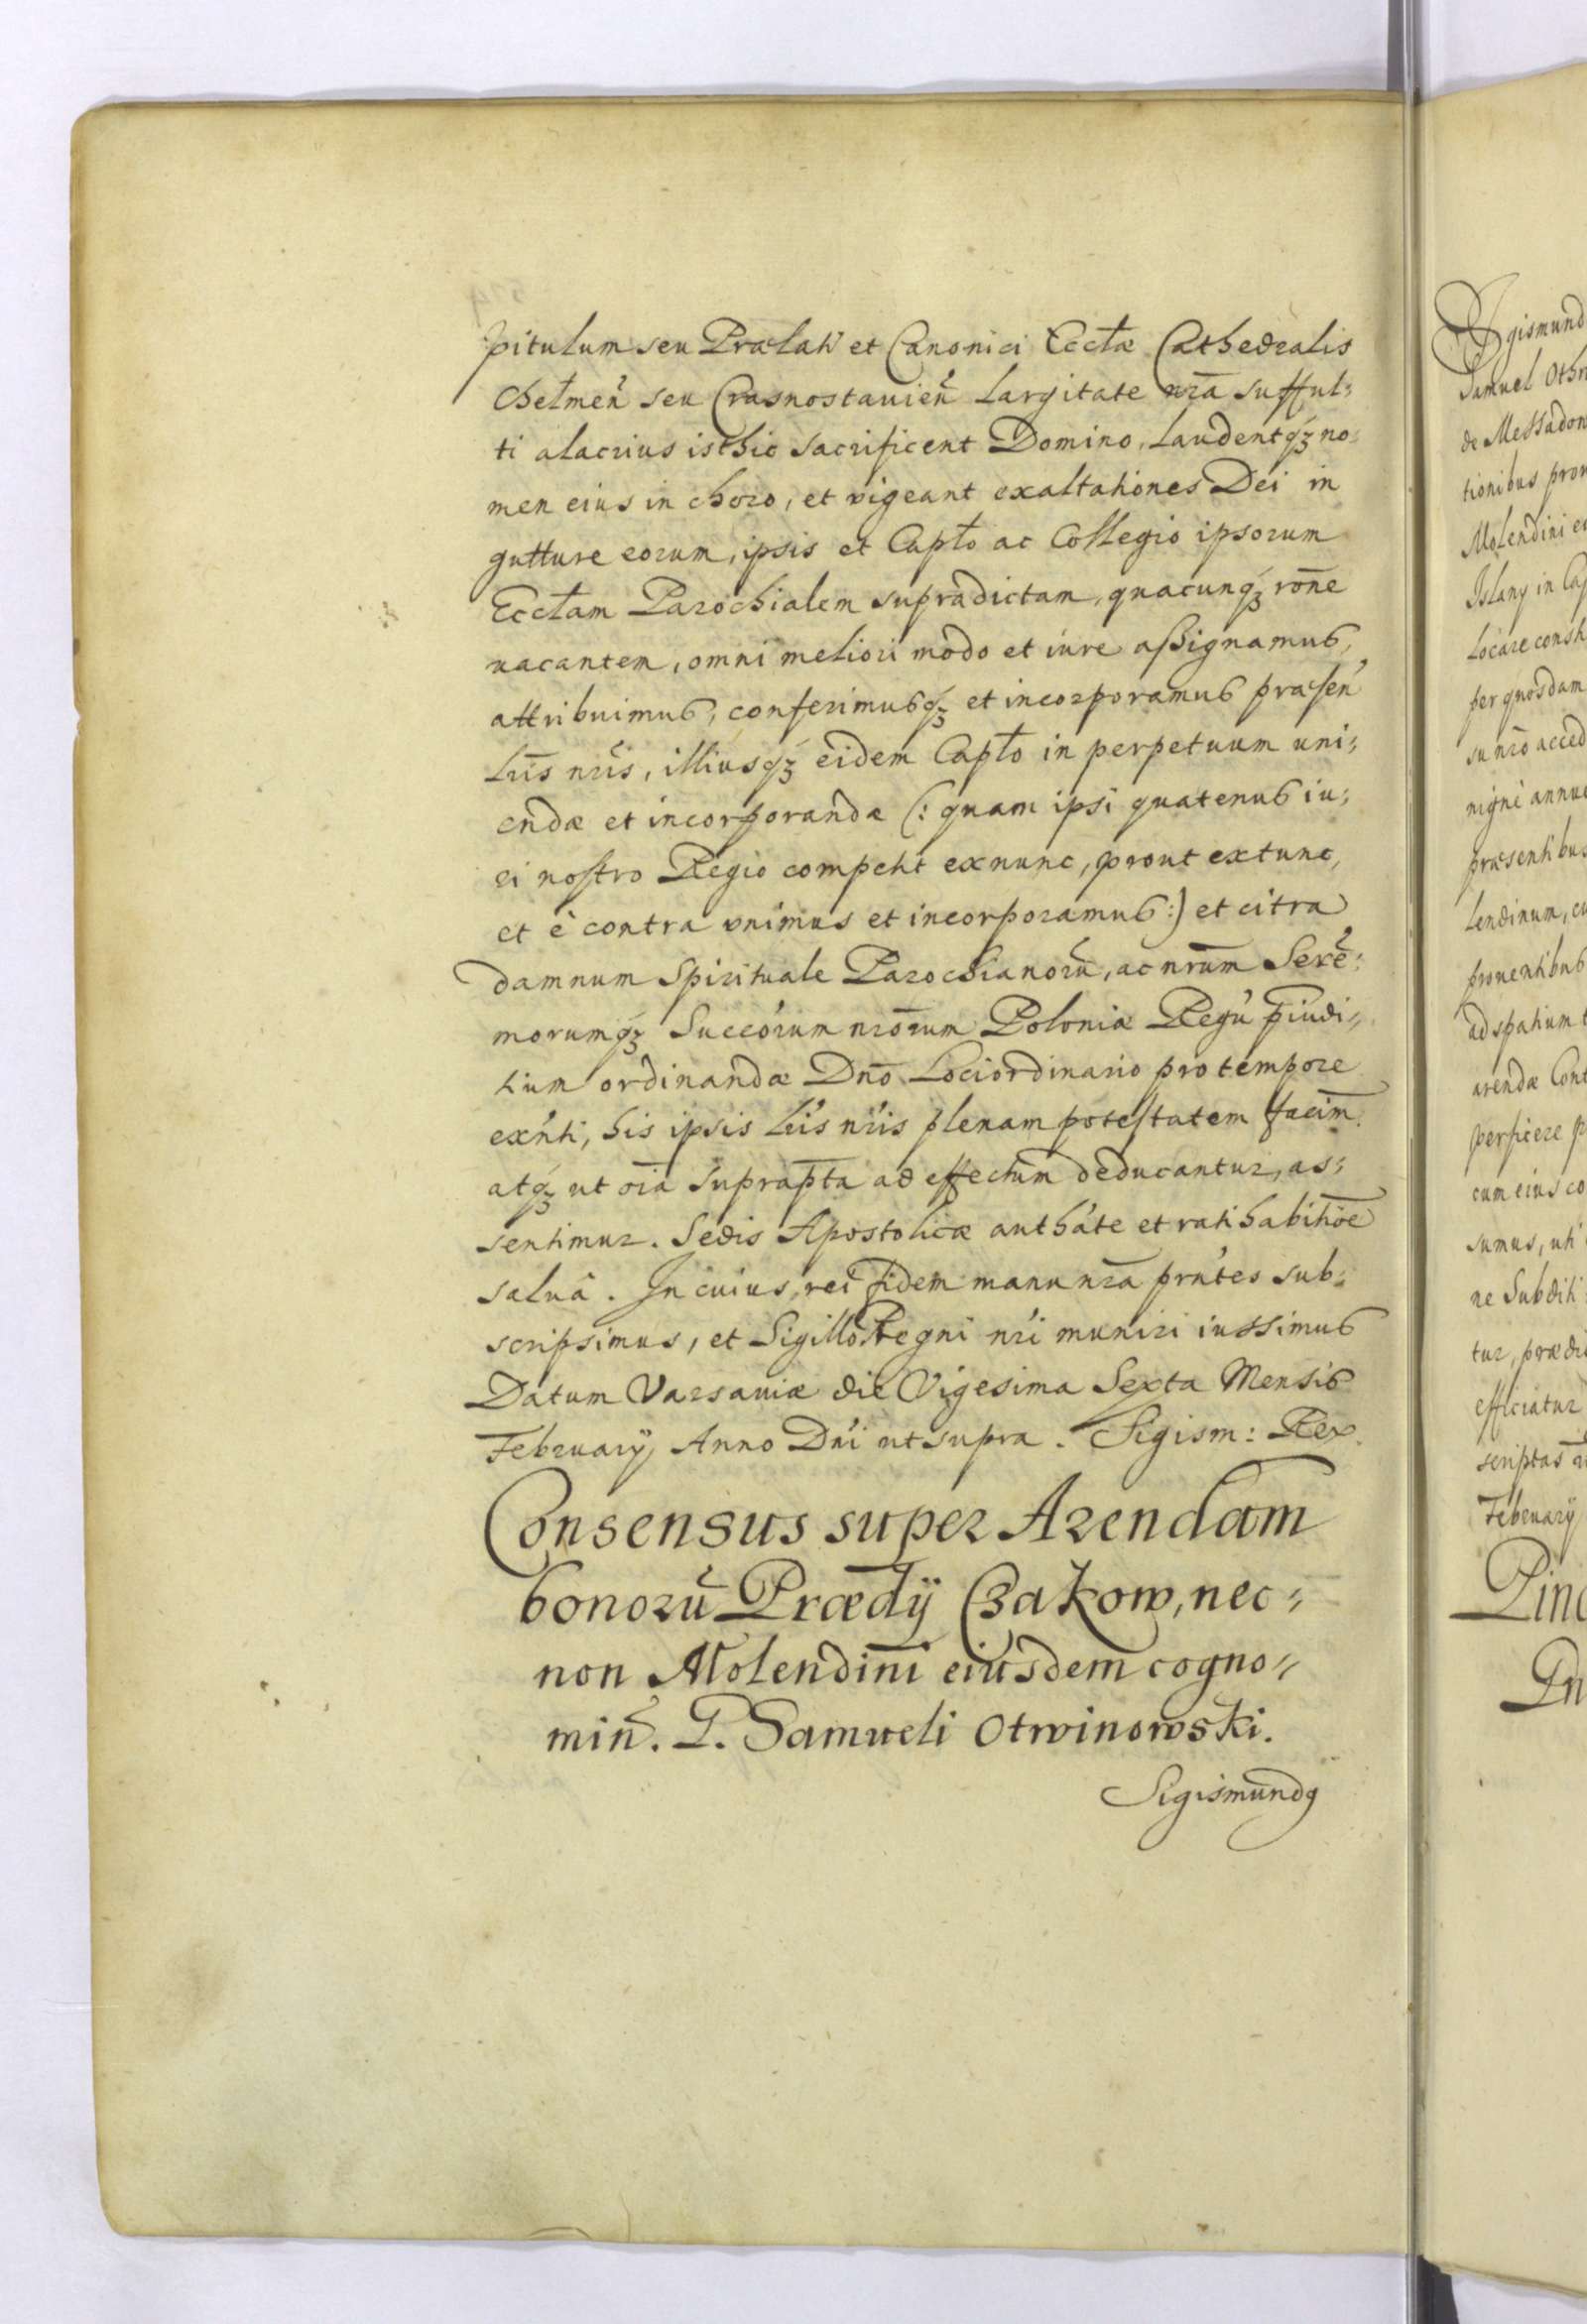 pitulum seu Prælati et Canonici Ecctæ Cathedralis
Chelmen̄ seu Crasnostauien̄ largitate nr̄a sufful:
ti alacrius isthic sacrificent Domino, laudentq́ꝫ no:
men eius in choro, et vigeant exaltationes Dei in
gutture eorum, ipsis et Capło ac Collegio ipsorum
Eccłam Parochialem supradictam, quacunq́ꝫ rōne
vacantem, omni meliori modo et iure aßignamus,
attribuimus, conferimusq́ꝫ et incorporamus præsen̄
Lrīs nrīs, illiusq́ꝫ eidem Capło in perpetuum uni:
endæ et incorporandæ (: quam ipsi quatenus iu:
ri nostro Regio competit exnunc, prout extunc,
et è contra vnimus et incorporamus :) et citra
damnum spirituale Parochianorū, ac nrūm Serē:
morumq́ꝫ Succórum nrōrum Poloniæ Regū piudi:
tium ordinandæ Dnō Lociordinario pro tempore
exn̄ti, his ipsis Lrīs nrīs plenam potestatem facim̄
atq́ꝫ ut oīa suprap̄ta ad effectum deducantur, as:
sentimur. Sedis Apostolicæ autháte et ratihabitiōe
saluâ. In cuius rei fidem manu nr̄a prn̄tes sub:
scripsimus, et Sigillo Regni nrī muniri iussimus
Datum Varsauiæ die Vigesima Sexta Mensis
Februarÿ Anno Dnī ut supra. Sigism: Rex.
Consensus super Arendam
bonorū Prædÿ Czakow, nec:
non Molendini eiusdem cogno:
min̄. G. Samueli Otwinowski.
Sigismundꝯ
gismund
Samuel Othw
de Messadon
tionibus pro
Molendini
Islany in Ca
locare cons
per quosdam
su nrō acced
nigné annue
præsentibus
lendinum, cu
prouentibus
ad spatium
arendæ Cont
perficere p
cum eius co
sumus, uti
re Subditi
tur, prædi
efficiatur
scriptas
Februarÿ